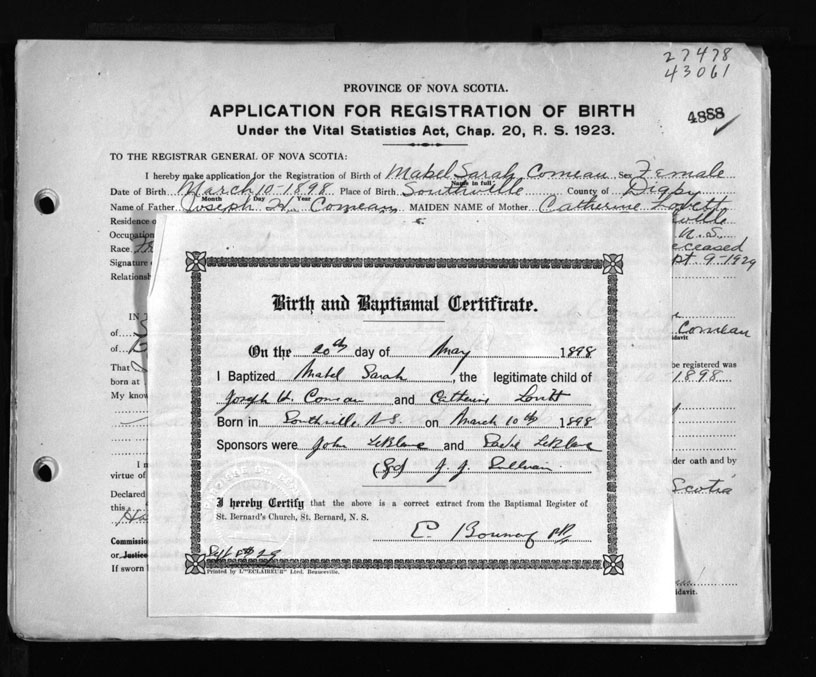 27478
43061
4888
PROVINCE OF NOVA SCOTIA.
APPLICATION FOR REGISTRATION OF BIRTH
Under the Vital Statistics Act, Chap. 20, R. S. 1923.
TO THE REGISTRAR GENERAL OF NOVA SCOTIA:
I hereby make application for the Registration of Birth of Mabel Sarah Comeau Sex Female
Name in full
Date of Birth March 10-1898 Place of Birth Southville County of Digby
Month Day Year
Name of Father Joseph H. Comeau MAIDEN NAME of Mother Catherine Lovett
Residence o
ville
Occupation
N.S.
Race
eceased
Signature
pt 9-1929
Relations
IN T
of
Comeau
davit
of
That
be registered was
born at
1898
My know
I
der oath and by
virtue of
Scotia
Declared
this
Commissio
or Justice
If sworn
davit.
Birth and Baptismal Certificate.
On the 20th day of May 1898
I Baptized Mabel Sarah, the legitimate child of
Joseph H. Comeau and Catherine Lovitt
Born in Southville N.S. on March 10th 1898
Sponsors were John LeBlanc and LeBlanc
(Sgd) J. J. Sullivan
I hereby Certify that the above is a correct extract from the Baptismal Register of
St. Bernard's Church, St. Bernard, N. S.
E. PP.
Sept 8th 29
Printed by L'"ECLAIREUR" Ltd.